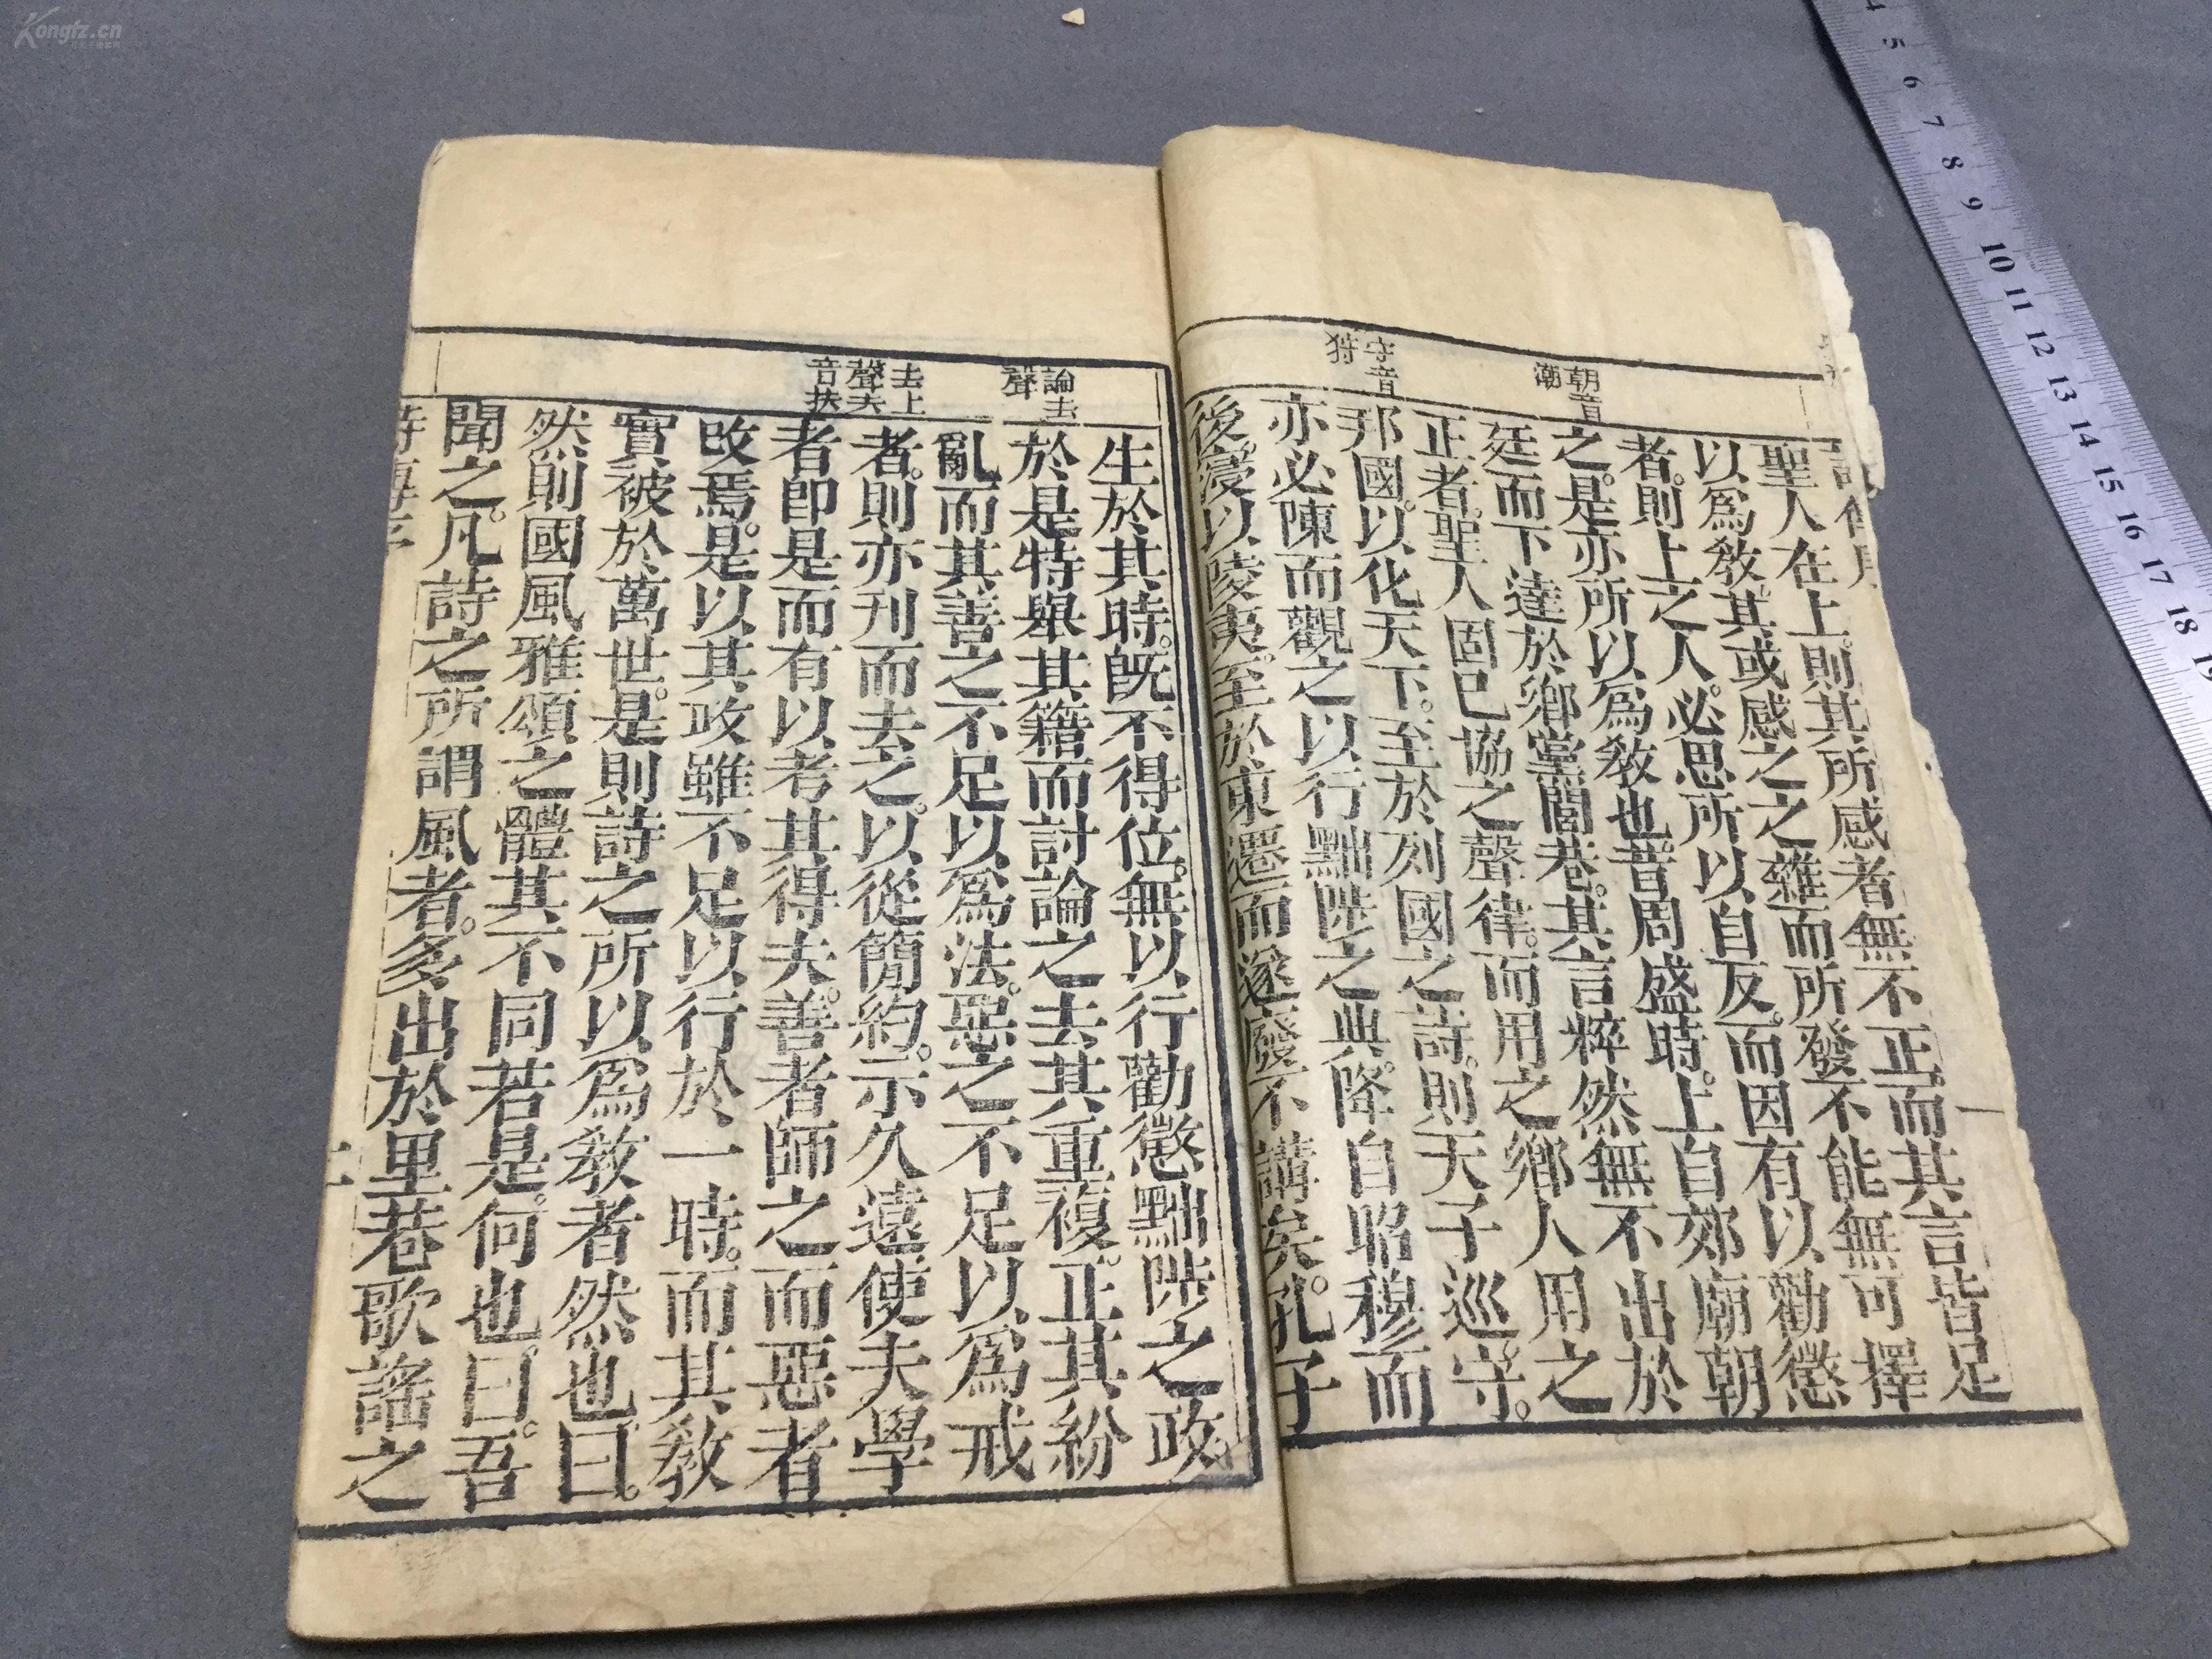 聖人在上。則其所感者無不正。而其言皆足
以爲敎。其或感之之雜。而所發不能無可擇
者。則上之人。必思所以自反。而因有以勸懲
之。是亦所以爲敎也。昔周盛時。上自郊廟朝
廷而下達於鄉黨閭巷。其言粹然無不出於
正者。聖人固已協之聲律。而用之鄉人用之
邦國。以化天下。至於列國之詩。則天子巡守。
亦必陳而觀之以行黜陟之典。降自昭穆而
後。寖以陵夷。至於東遷而遂廢不講矣。孔子
朝音
潮
守音
狩
生於其時。旣不得位。無以行勸懲黜陟之政。
於是特舉其籍而討論之去其重複。正其紛
亂而其善之不足以爲法。惡之不足以爲戒
者。則亦刊而去之。以從簡約。示久遠使夫學
者即是而有以考其得失。善者師之而惡者
改焉。是以其政雖不足以行於一時。而其敎
實被於萬世。是則詩之所以爲敎者然也曰。
然則國風雅頌之體其不同若是。何也。曰。吾
聞之。凡詩之所謂風者。多出於里巷歌謠之
論去
聲
去上
聲夫
音扶
詩傳序
二
Kongfz.cn